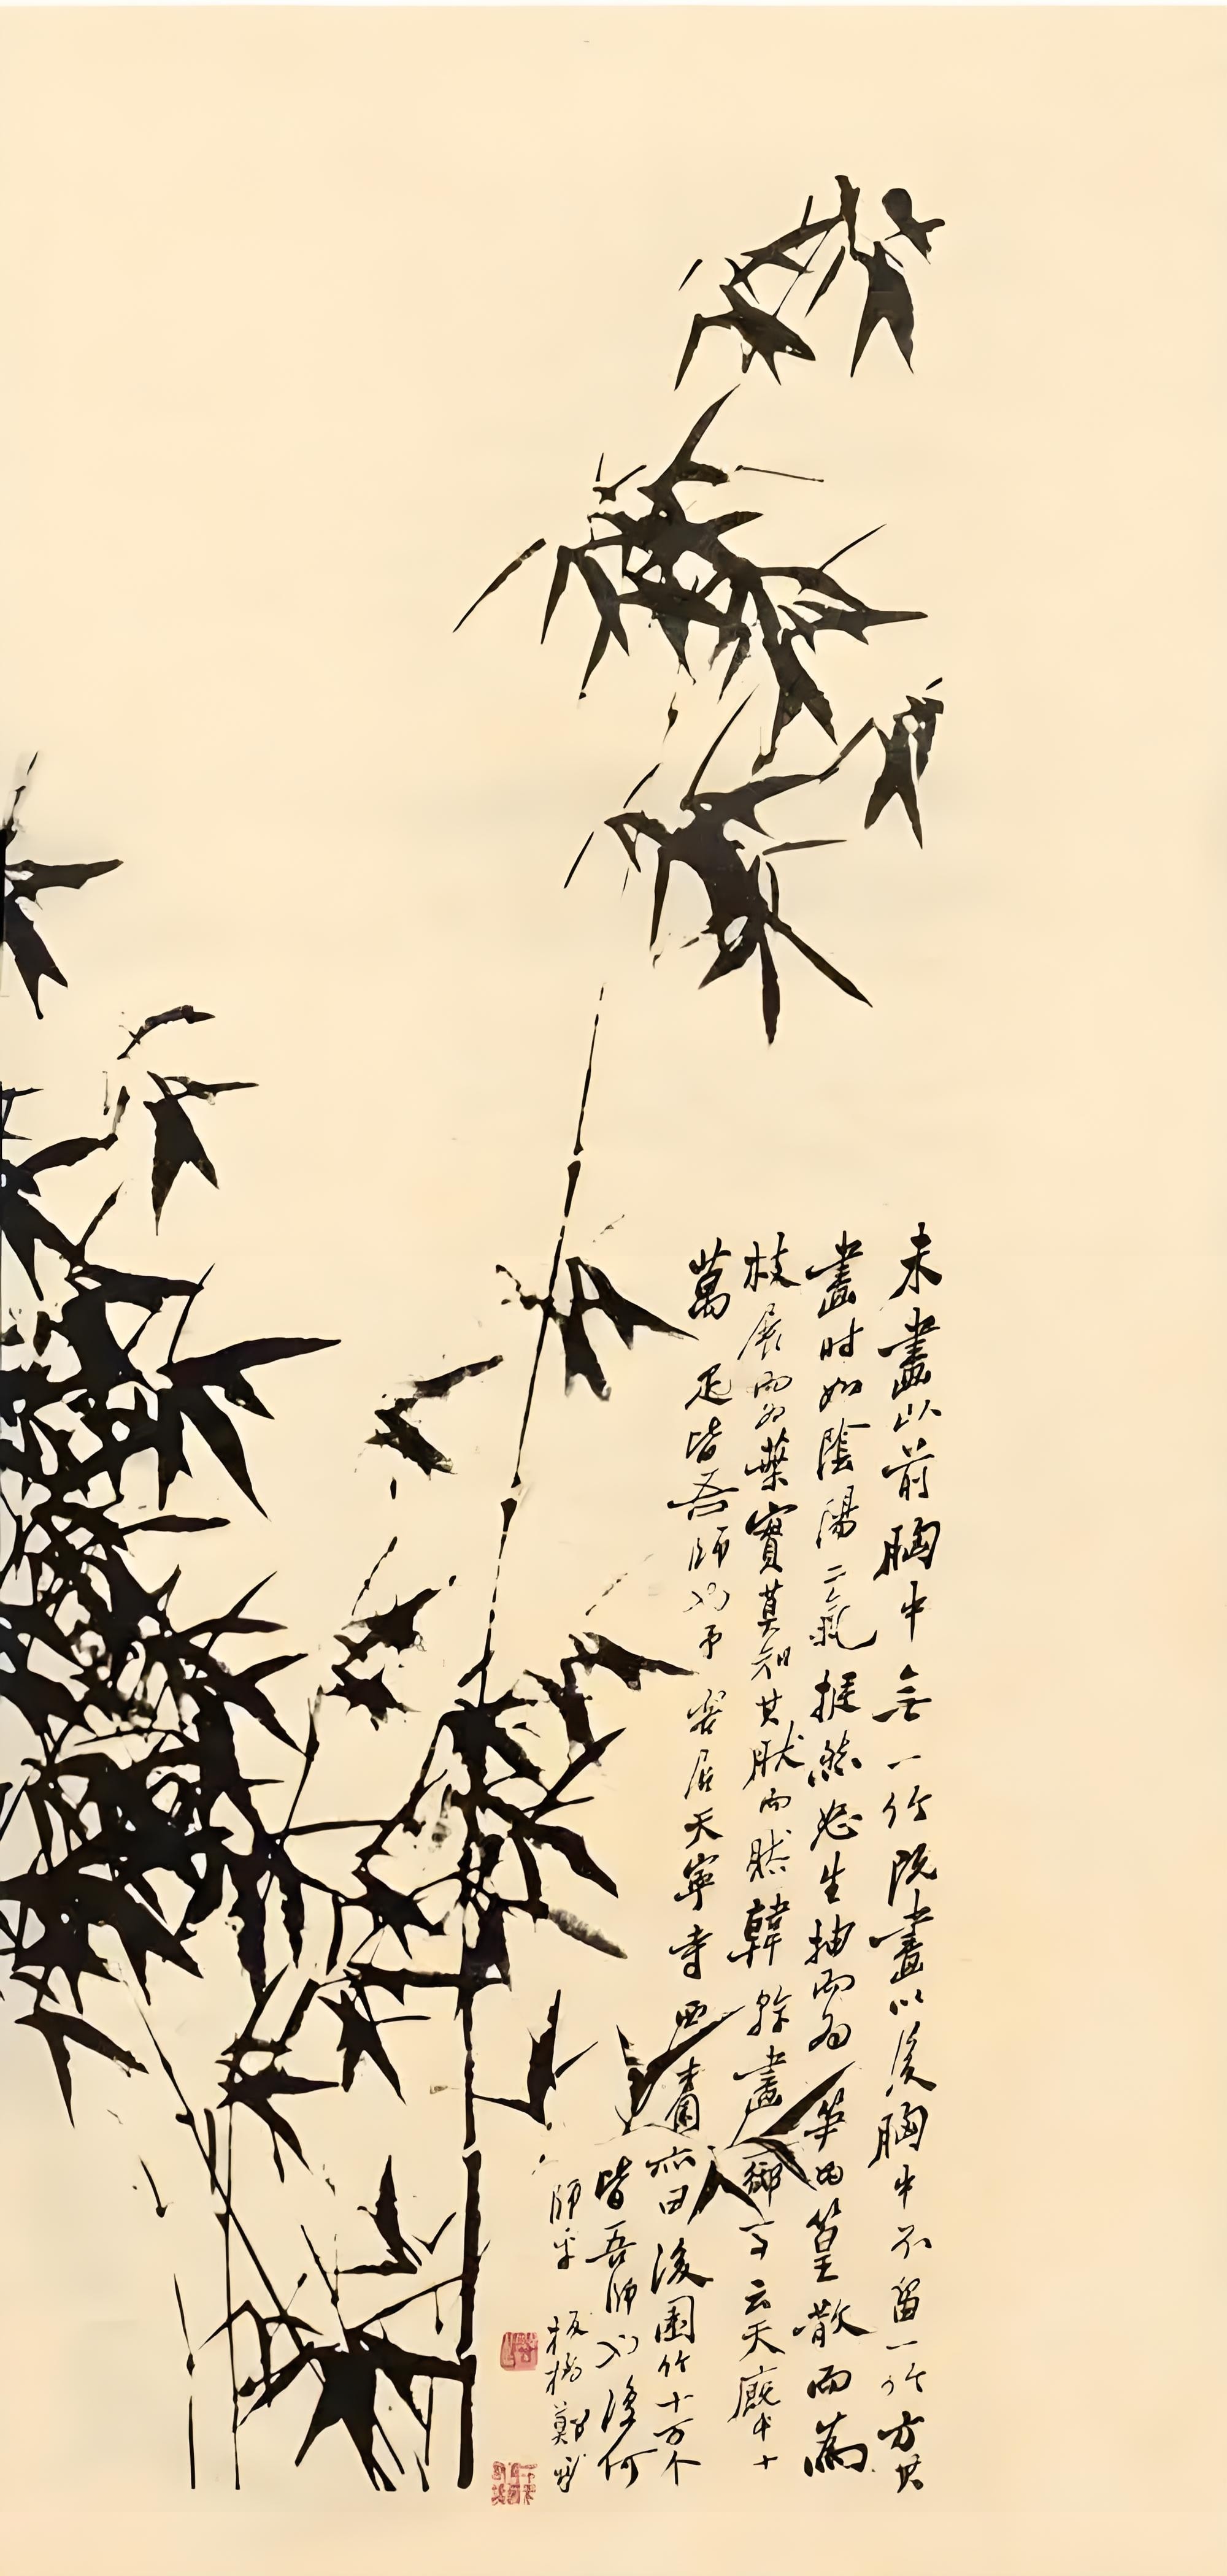 未畫以前胸中無一竹既畫以後胸中不留一竹方其
畫时如陰陽二氣挺然怒生抽而为笋为篁散而為
枝展而为葉實莫知其然而然韓幹畫御馬云天廐中十
萬疋皆吾師也予客居天寧寺西杏園亦曰後園竹十万个
皆吾師也復何
師乎 板橋鄭燮